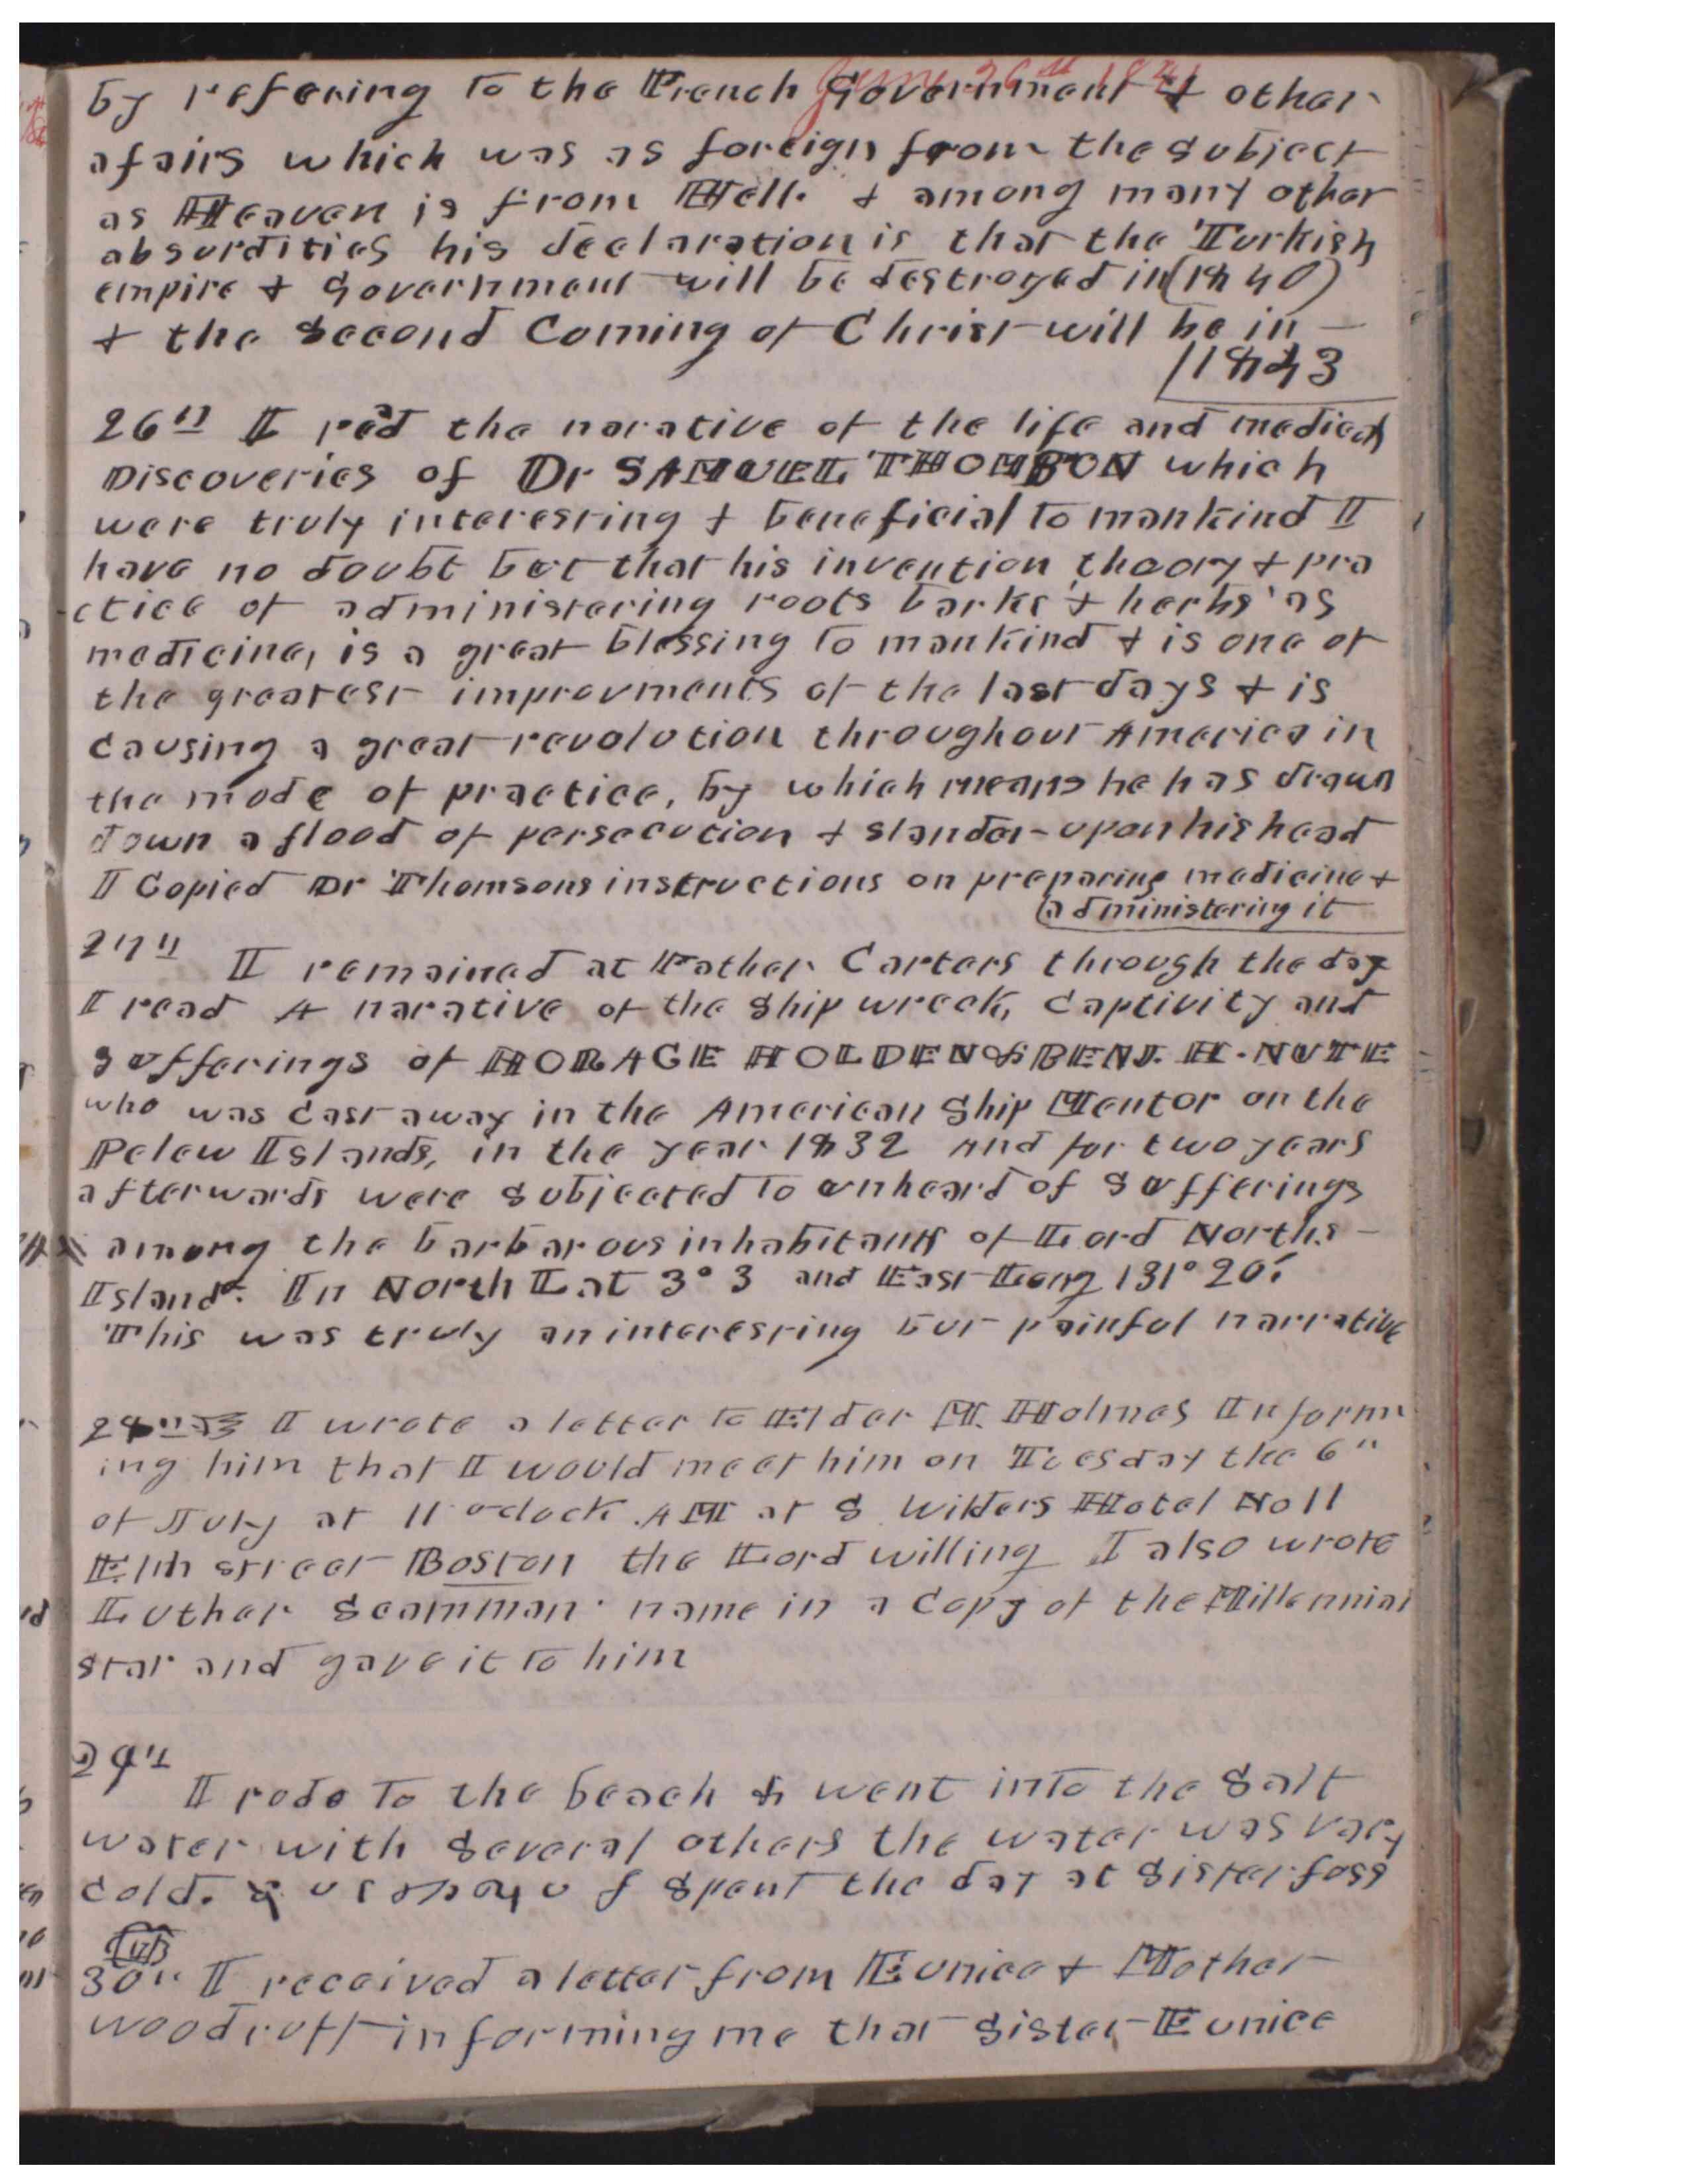 June 26th 1841
by refering to the French Government & other
afairs which was as foreign from the subject
as Heaven is from Hell. & among many other
absurdities his declaration is that the Turkish
empire & Government will be destroyed in (1840)
& the Second Coming of Christ will be in —
1843
26" I read the narative of the life and medical
Discoveries of Dr SAMUEL THOMSON which
were truly interesting & beneficial to mankind I
have no doubt but that his invention theory & pra
-ctice of administering roots barks & herbs as
medicine, is a great blessing to mankind & is one of
the greatest improvments of the last days & is
causing a great revolution throughout America in
the mode of practice, by which means he has drawn
down a flood of persecution & slander upon his head
I Copied Dr Thomsons instructions on preparing medicine &
administering it
27" I remained at Father Carters through the day
I read A narative of the Ship wreck, Captivity and
sufferings of HORACE HOLDEN & BENJ. H. NUTE
who was cast away in the American Ship Mentor on the
Pelew Islands, in the year 1832 And for two years
afterwards were subjected to unheard of sufferings
among the barbarous inhabitants of Lord Norths —
Island. In North Lat 3° 3 and East Long 131° 20'
This was truly an interesting but painful narrative
28" I wrote a letter to Elder M. Holmes Inform
ing him that I would meet him on Tuesday the 6"
of July at 11 o-clock AM at S Wilders Hotel No 11
Elm street Boston the Lord willing I also wrote
Luther Scamman name in a Copy of the Millennial
star and gave it to him
29"
I rode to the beach & went into the Salt
water with Several others the water was vary
cold. spent the day at Sister foss
30" I received a letter from Eunice & Mother
woodruff informing me that Sister Eunice